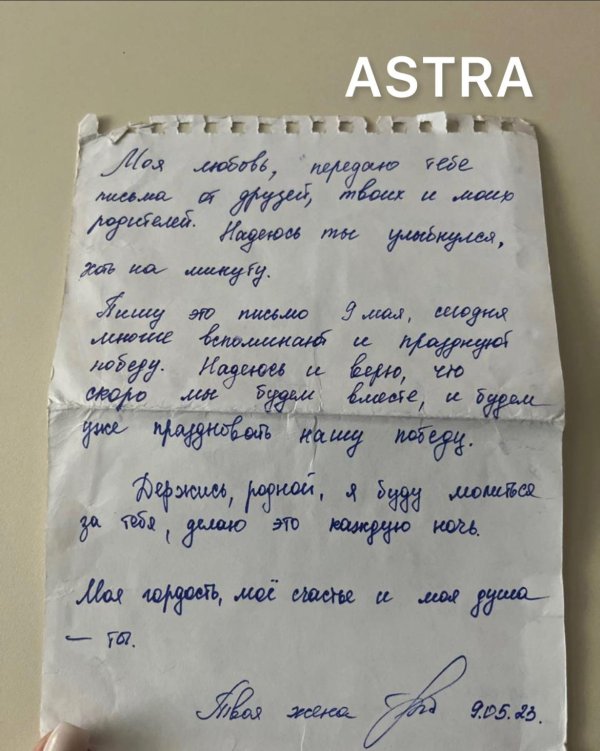 ASTRA
Моя любовь, передаю тебе
письма от друзей, твоих и моих
родителей. Надеюсь ты улыбнулся,
хоть на минуту.
Пишу это письмо 9 мая, сегодня
многие вспоминают и празднуют
победу. Надеюсь и верю, что
скоро мы будем вместе, и будем
уже праздновать нашу победу.
Держись, родной, я буду молиться
за тебя, делаю это каждую ночь.
Моя гордость, моё счастье и моя душа
— ты.
Твоя жена 9.05.23.